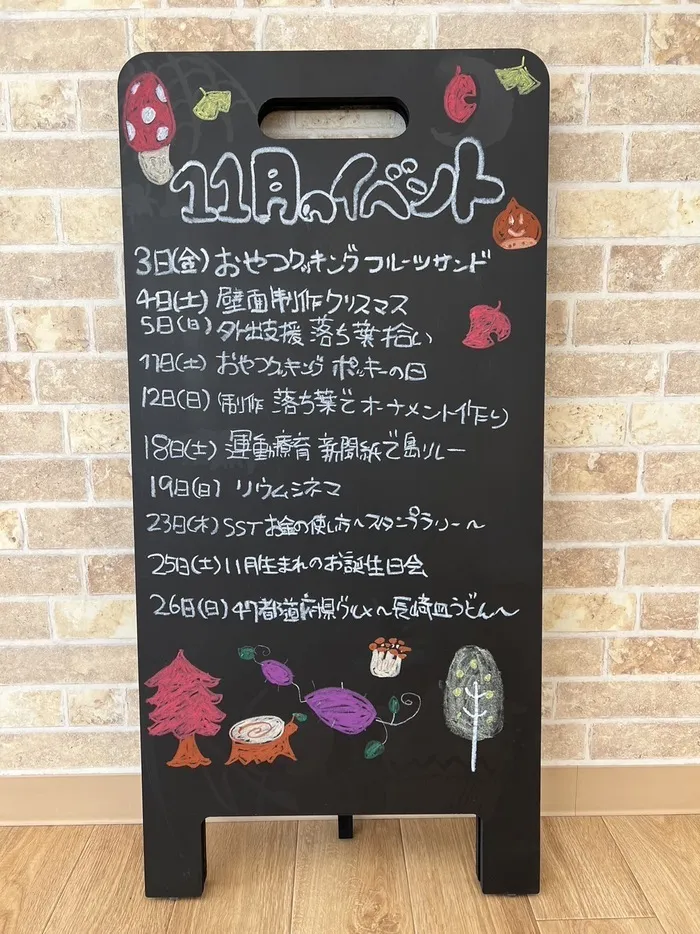 11月のイベント
3日(金) おやつクッキング フルーツサンド
4日(土) 壁面制作クリスマス
5日(日) 外出支援 落ち葉拾い
11日(土) おやつクッキング ポッキーの日
12日(日) 制作 落ち葉でオーナメント作り
18日(土) 運動療育 新聞紙で島リレー
19日(日) リウムシネマ
23日(木) SSTお金の使い方~スタンプラリー~
25日(土) 11月生まれのお誕生日会
26日(日) 47都道府県グルメ~長崎皿うどん~